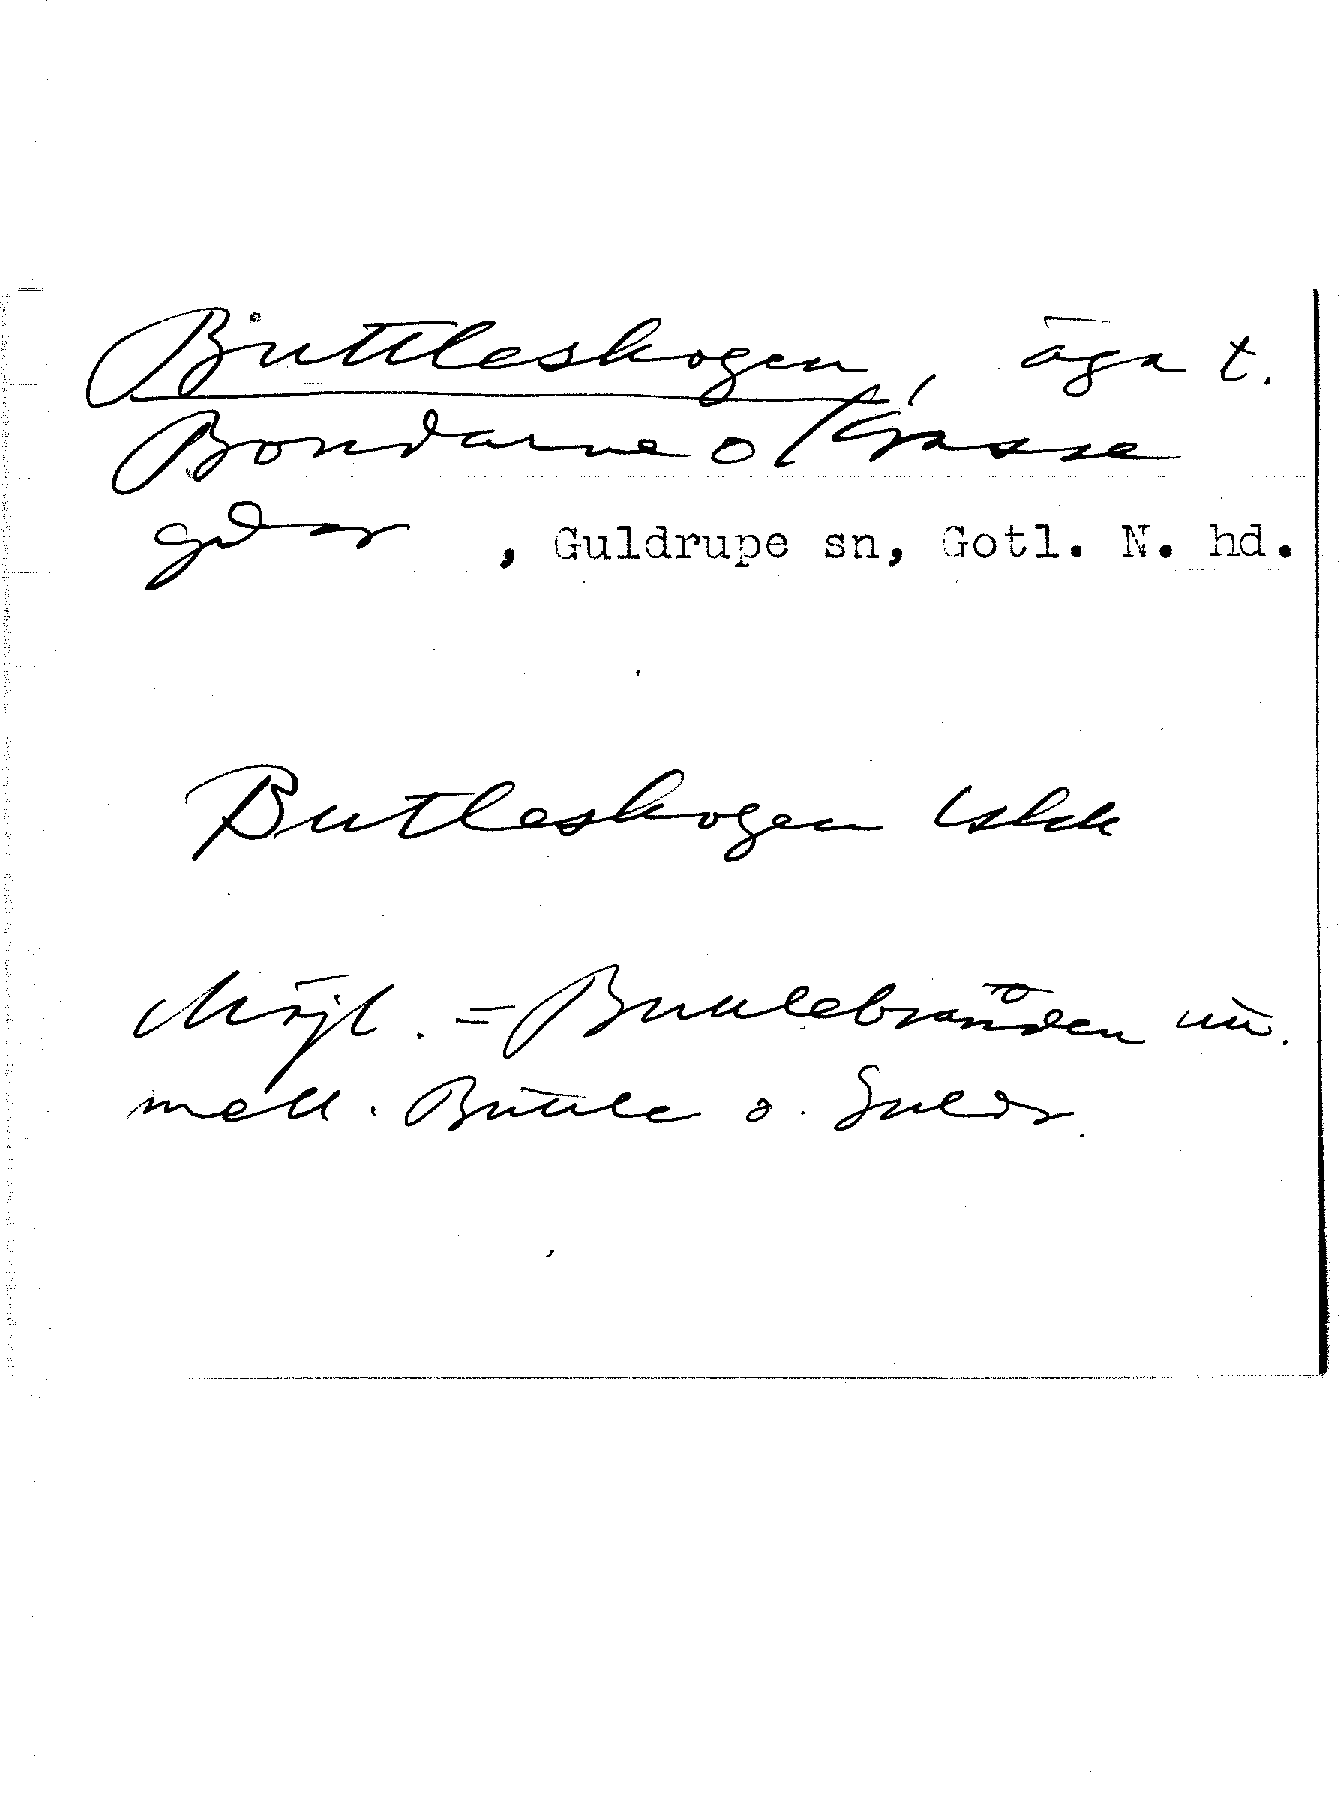 Buttleskogen, äga t.
Bondarve o Krasse
gdar, Guldrupe sn, Gotl. N. hd.
Butleskogen Iskk
Möjl. = Buttlebränden
mell. Buttle o. Guldr.